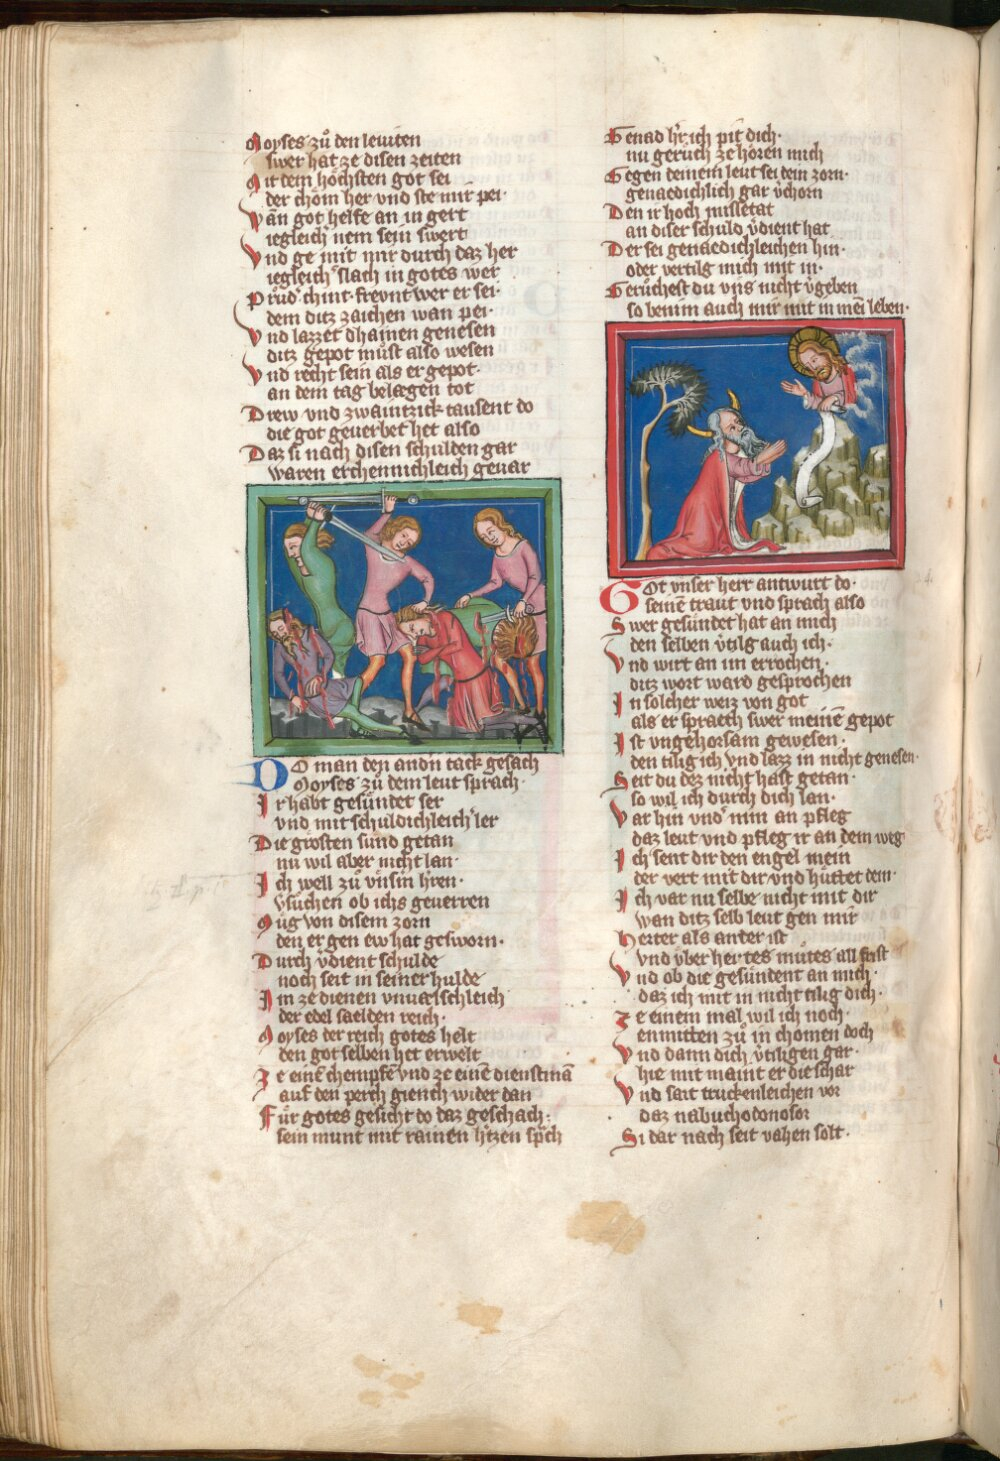 Moyses zů den leuiten
swer hat ze disen zeiten
Mit dem höchsten got sei
der chöm her vnd ste mir pei·
Wān got helfe an in gert
iegleich nem sein swert
Vnd ge mit mir durch daz her
iegleich slach in gotes wer
Průd chint freynt wer er sei·
dem ditz zaichen wan pei·
Vnd lazzet dhainen genesen
ditz gepot můst also wesen
Vnd recht sein als er gepot·
an dem tag belægen tot
Drew vnd zwaintzick tausent do
die got geuerbet het also
Daz si nach disen schulden gar
waren erchennichleich geuar
DO man den andn tack gesach
Moyses zů dem leut sprach·
Ir habt gesündet ser
vnd mit schuldichleich ler
Die grösten sünd getan
nu wil aber nicht lan·
Ich well zů vnsin hren·
vsůchen ob ichs geuerren
Müg von disem zorn
den er gen ew hat gesworn·
Durch vdient schulde
noch seit in seiner hulde
Im ze dienen vnuælschleich
der edel sælden reich·
Moyses der reich gotes helt
den got selben het erwelt
Ze einē chempfē vnd ze einē dienstmā
auf den perch giench wider dan
Für gotes gesicht do daz geschach·
sein munt mit rainen htzen spch
Genad hr ich pit dich·
nu gerůch ze hören mich
Gegen deinem leut sei dein zorn·
genædichlich gar vchorn
Den ir hoch missetat
an diser schuld vdient hat
Der sei genædichleichen hin·
oder vertilg mich mit in·
Gerůchest du vns nicht vgeben
so benim auch mir mit in mei leben·
GOt vnser herr antwurt do·
seinē traut vnd sprach also
Swer gesündet hat an mich
den selben vtilg auch ich·
Vnd wirt an im errochen·
ditz wort ward gesprochen
In solcher weiz von got
als er spræch swer meinē gepot
Ist vngehorsam gewesen·
den tilig ich vnd lazz in nicht genesen·
Seit du dez nicht hast getan·
so wil ich durch dich lan·
Var hin vnd nim an pfleg
daz leut vnd pfleg ir an dem weg
Ich sent dir den engel mein
der vert mit dir vnd hüttet dein·
Ich var nu selbe nicht mit dir
wan ditz selb leut gen mir
Herter als anter ist
vnd über hertes můtes all frist
Vnd ob die gesündent an mich·
daz ich mit in nicht tilig dich·
Ze einem mal wil ich noch
enmitten zů in chomen doch
Vnd dann dich vtiligen gar·
hie mit maint er die schar
Vnd sait truckenleichen vor
daz nabuchodonosor
Si dar nach seit vahen solt·